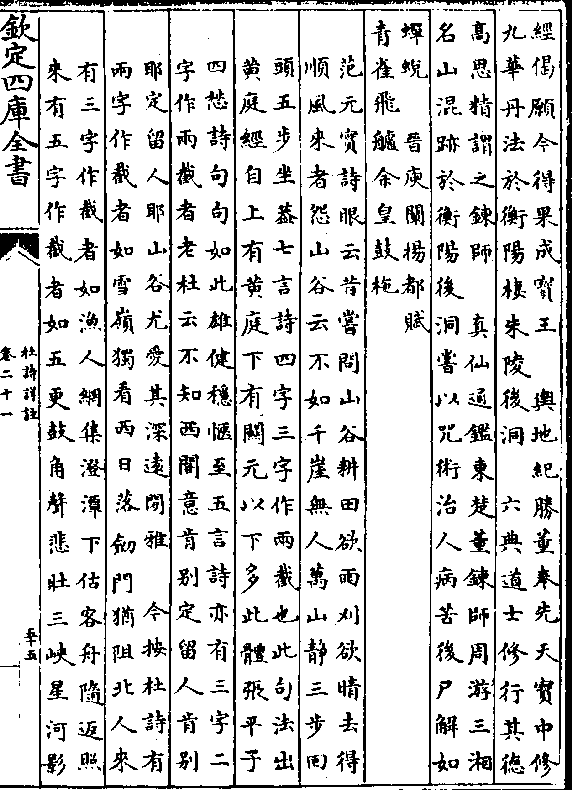 經偈願今得果成寶王　輿地紀勝董奉先天寶中修
九華丹法於衡陽棲朱陵後洞　六典道士修行其德
高思精謂之鍊師　真仙通鑑東楚董鍊師周游三湘
名山混跡於衡陽後洞嘗以咒術治人病苦後尸解如
蟬蛻　晉庾闡揚都賦
青雀飛艫余皇鼓柂
范元實詩眼云昔嘗問山谷耕田欲雨刈欲晴去得
順風來者怨山谷云不如千崖無人萬山靜三步回
頭五步坐葢七言詩四字三字作兩截也此句法出
黄庭經自上有黄庭下有關元以下多此體張平子
四愁詩句句如此雄健穩愜至五言詩亦有三字二
字作兩截者老杜云不知西閣意肯别定留人肯别
耶定留人耶山谷尤愛其深遠閒雅　今按杜詩有
兩字作截者如雪嶺獨看西日落劒門猶阻北人來
有三字作截者如漁人網集澄潭下估客舟隨返照
來有五字作截者如五更鼓角聲悲壯三峽星河影
欽定四庫全書
杜詩詳註
卷二十一